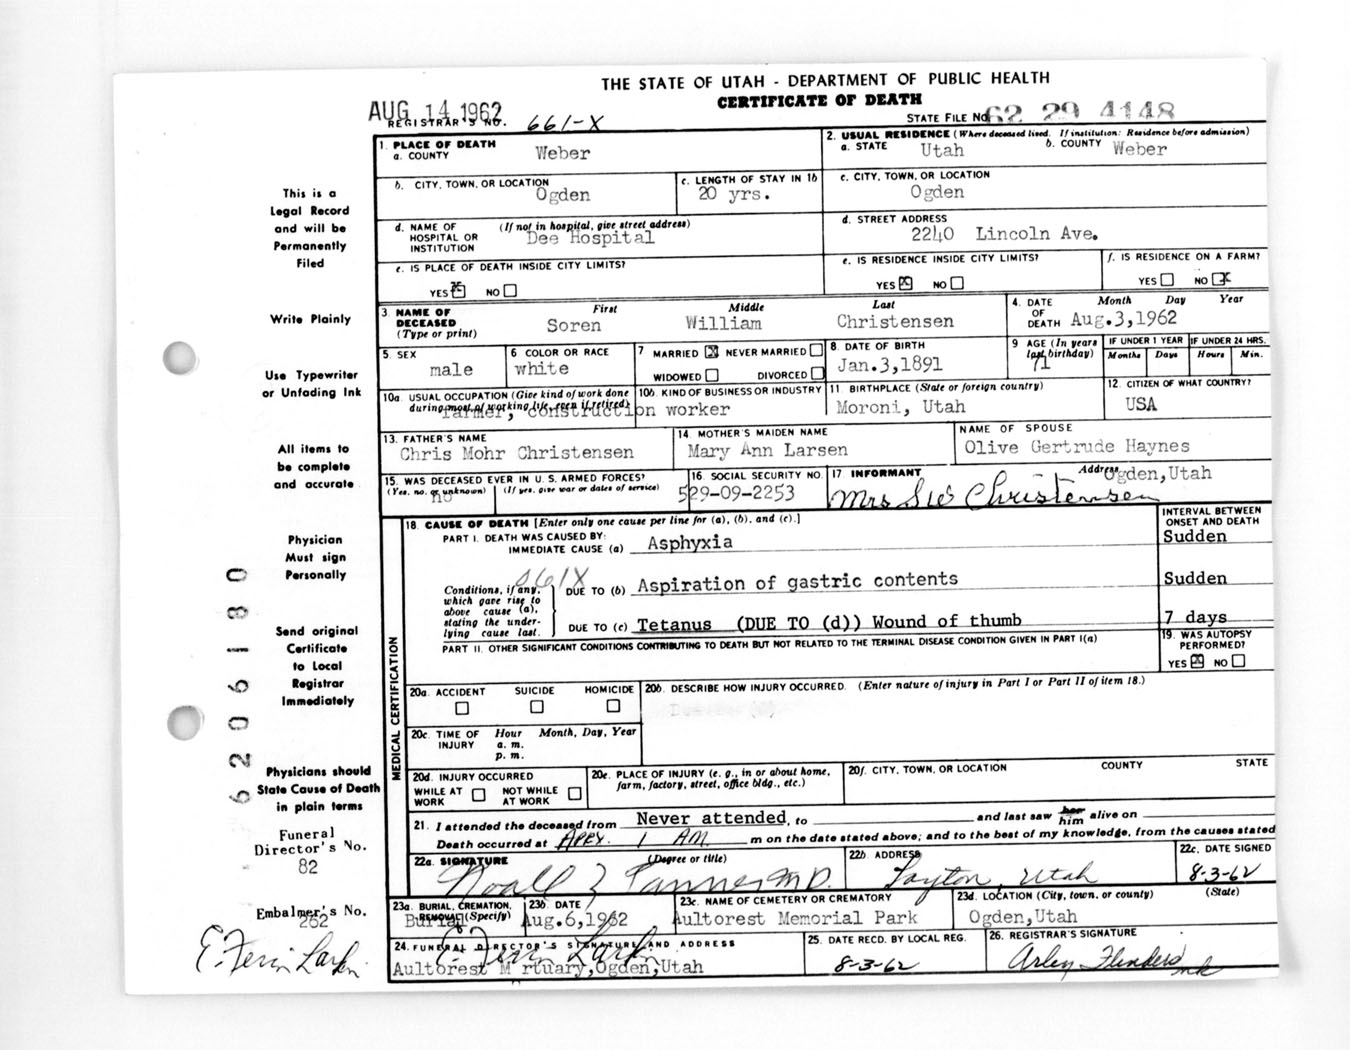 THE STATE OF UTAH - DEPARTMENT OF PUBLIC HEALTH
CERTIFICATE OF DEATH
AUG 14 1962
REGISTRAR'S NO. 661-X
STATE FILE NO. 62 29 4148
This is a
Legal Record
and will be
Permanently
Filed
Write Plainly
Use Typewriter
or Unfading Ink
All items to
be complete
and accurate
Physician
Must sign
Personally
Send original
Certificate
to Local
Registrar
Immediately
Physicians should
State Cause of Death
in plain terms
Funeral
Director's No.
82
Embalmer's No.
262
E. Ferrin Larkin
6206180
1. PLACE OF DEATH
a. COUNTY Weber
2. USUAL RESIDENCE (Where deceased lived. If institution: Residence before admission)
a. STATE Utah b. COUNTY Weber
b. CITY, TOWN, OR LOCATION Ogden
c. LENGTH OF STAY IN 1b 20 yrs.
c. CITY, TOWN, OR LOCATION Ogden
d. NAME OF HOSPITAL OR INSTITUTION (If not in hospital, give street address) Dee Hospital
d. STREET ADDRESS 2240 Lincoln Ave.
e. IS PLACE OF DEATH INSIDE CITY LIMITS?
YES X NO
e. IS RESIDENCE INSIDE CITY LIMITS?
YES X NO
f. IS RESIDENCE ON A FARM?
YES NO X
3. NAME OF DECEASED (Type or print) First Middle Last
Soren William Christensen
4. DATE OF DEATH Month Day Year
Aug.3,1962
5. SEX male
6. COLOR OR RACE white
7 MARRIED X NEVER MARRIED
WIDOWED DIVORCED
8. DATE OF BIRTH Jan.3,1891
9 AGE (In years last birthday) 71
IF UNDER 1 YEAR Months Days
IF UNDER 24 HRS. Hours Min.
10a. USUAL OCCUPATION (Give kind of work done during most of working life, even if retired)
10b. KIND OF BUSINESS OR INDUSTRY
farmer, construction worker
11 BIRTHPLACE (State or foreign country) Moroni, Utah
12 CITIZEN OF WHAT COUNTRY? USA
13. FATHER'S NAME Chris Mohr Christensen
14 MOTHER'S MAIDEN NAME Mary Ann Larsen
NAME OF SPOUSE Olive Gertrude Haynes
15. WAS DECEASED EVER IN U.S. ARMED FORCES?
(Yes, no, or unknown) (If yes, give war or dates of service)
no
16 SOCIAL SECURITY NO. 529-09-2253
17 INFORMANT Address Ogden,Utah
Mrs Christensen
MEDICAL CERTIFICATION
18. CAUSE OF DEATH [Enter only one cause per line for (a), (b), and (c).]
INTERVAL BETWEEN ONSET AND DEATH
PART I. DEATH WAS CAUSED BY:
IMMEDIATE CAUSE (a) Asphyxia Sudden
061X
Conditions, if any, which gave rise to above cause (a), stating the underlying cause last.
DUE TO (b) Aspiration of gastric contents Sudden
DUE TO (c) Tetanus (DUE TO (d)) Wound of thumb 7 days
PART II. OTHER SIGNIFICANT CONDITIONS CONTRIBUTING TO DEATH BUT NOT RELATED TO THE TERMINAL DISEASE CONDITION GIVEN IN PART I(a)
19. WAS AUTOPSY PERFORMED?
YES X NO
20a. ACCIDENT SUICIDE HOMICIDE
20b. DESCRIBE HOW INJURY OCCURRED. (Enter nature of injury in Part I or Part II of item 18.)
20c. TIME OF INJURY Hour Month, Day, Year
a. m.
p. m.
20d. INJURY OCCURRED
WHILE AT WORK NOT WHILE AT WORK
20e. PLACE OF INJURY (e. g., in or about home, farm, factory, street, office bldg., etc.)
20f. CITY, TOWN, OR LOCATION COUNTY STATE
21. I attended the deceased from Never attended, to and last saw her him alive on
Death occurred at Appx. 1 AM. m on the date stated above; and to the best of my knowledge, from the causes stated
22a. SIGNATURE (Degree or title) Noall Z Tanner M.D.
22b. ADDRESS Layton, Utah
22c. DATE SIGNED 8-3-62
23a. BURIAL, CREMATION, REMOVAL (Specify) Burial
23b. DATE Aug.6,1962
23c. NAME OF CEMETERY OR CREMATORY Aultorest Memorial Park
23d. LOCATION (City, town, or county) (State) Ogden,Utah
24. FUNERAL DIRECTOR'S SIGNATURE AND ADDRESS
E. Ferrin Larkin
Aultorest M rtuary,Ogden,Utah
25. DATE RECD. BY LOCAL REG. 8-3-62
26. REGISTRAR'S SIGNATURE Arley Flinders mk